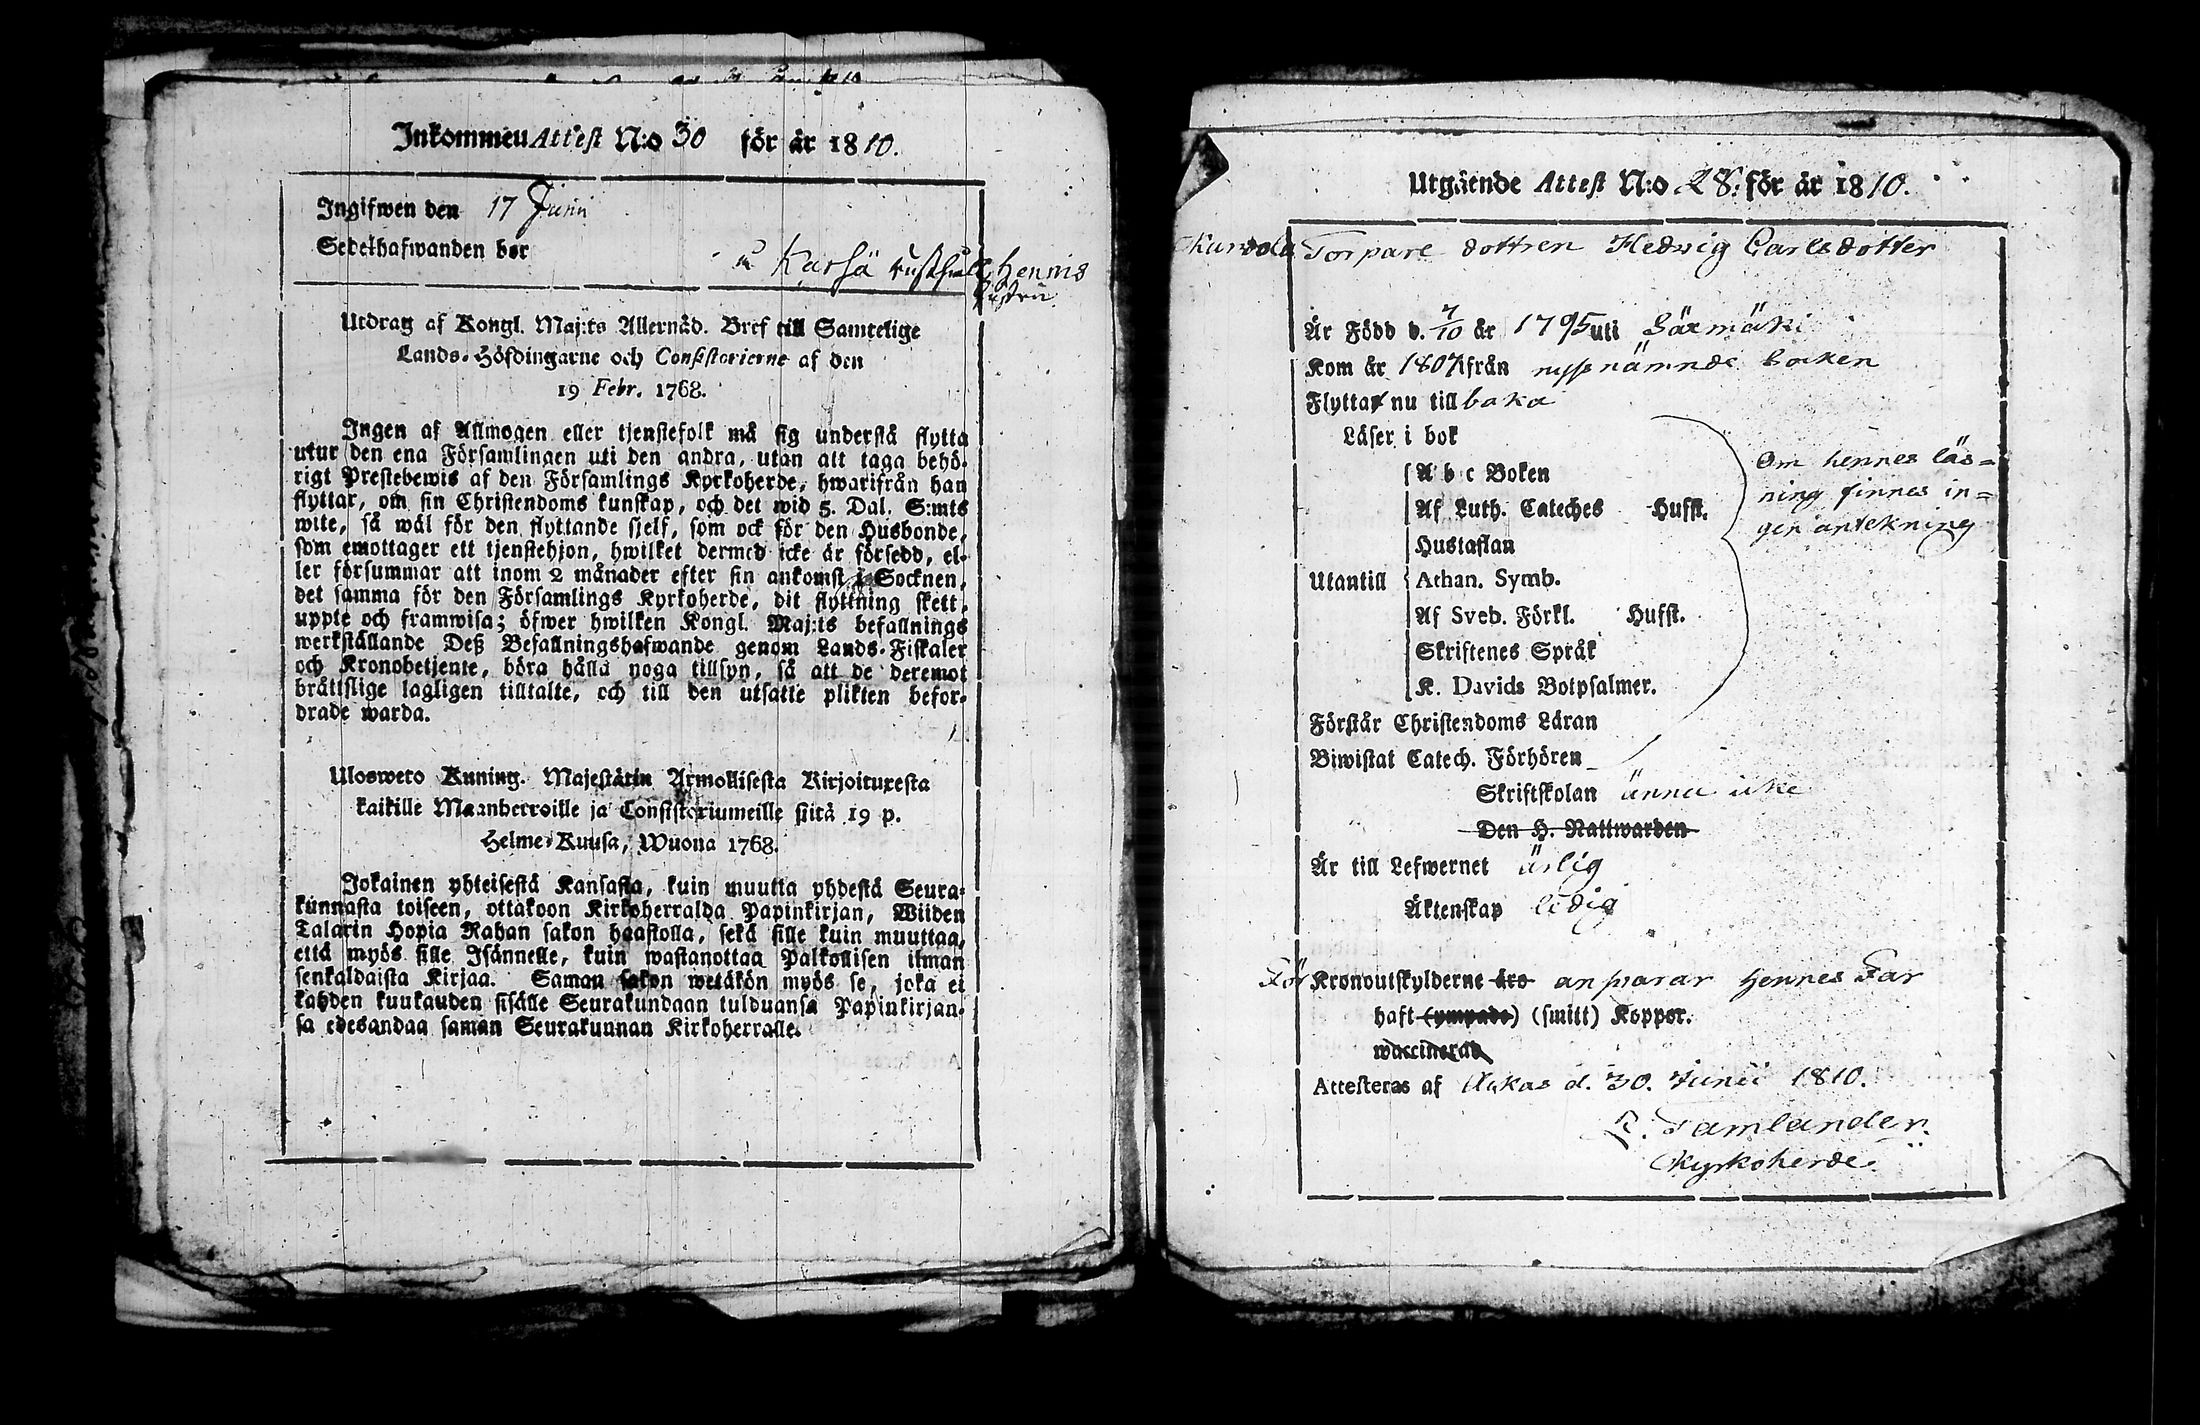 Inkommen Attest N:o 30 för år 1810.
Ingifwen den 17 Junii
Sedelhafwanden bor
Karsä rusthåll Hennis
Utdrag af Kongl. Maj:ts Allernåd. Bref till Samtelige
Lands-Höfdingarne och Consistorierne af den
19 Febr. 1768.
Ingen af Allmogen eller tjenstefolk må sig understå flytta
utur den ena Församlingen uti den andra, utan att taga behö-
rigt Prestebewis af den Församlings Kyrkoherde, hwarifrån han
flyttar, om sin Christendoms kunskap, och det wid 5. Dal. S:mts
wite, så wäl för den flyttande sjelf, som ock för den Husbonde,
som emottager ett tjenstehjon, hwilket dermed icke är försedd, el-
ler försummar att inom 2 månader efter sin ankomst i Socknen,
det samma för den Församlings Kyrkoherde, dit flyttning skett,
uppte och framwisa; öfwer hwilken Kongl. Maj:ts befallnings
werkställande Deß Befallningshafwande genom Lands-Fiskaler
och Kronobetjente, böra hålla noga tillsyn, så att de deremot
bråttslige lagligen tilltalte, och till den utsatte plikten befor-
drade warda.
Ulosweto Kuning. Majestätin Armollisesta Kirjoituxesta
kaikille Maanherroille ja Consistoriumeille siitä 19 p.
Helme-Kuusa, Wuona 1768.
Jokainen yhteisestä Kansasta, kuin muutta yhdestä Seura-
kunnasta toiseen, ottakoon Kirkoherralda Papinkirjan, Wiiden
Talarin Hopia Rahan sakon haastolla, sekä sille kuin muuttaa,
että myös sille Isännelle, kuin wastanottaa Palkollisen ilman
senkaldaista Kirjaa. Saman sakon wetäkön myös se, joka ei
kahden kuukauden sisälle Seurakundaan tulduansa Papinkirjan-
sa edesandaa saman Seurakunnan Kirkoherralle.
Utgående Attest N:o 28. för år 1810.
Torpare dottren Hedwig Carlsdotter
Är Född d. 7/10 år 1795 uti Särmäki
Kom år 1807 ifrån nyss nämnde Socken
Flyttar nu till baka
Läser i bok
A b c Boken
Om hennes läs=
Af Luth. Cateches Hufst.
ning finnes in=
Hustaflan
gen antekning
Utantill Athan. Symb.
Af Sveb. Förkl. Hufst.
Skriftenes Språk
K. Davids Botpsalmer.
Förstår Christendoms Läran
Biwistat Catech. Förhören
Skriftskolan ännu icke
Den H. Nattwarden
Är till Lefwernet ärlig
Äktenskap ledig
För Kronoutskylderne äro answarar hennes Far
haft (ympade) (smitt) Koppor.
waccinerad
Attesteras af Ackas d. 30. Junii 1810.
Tamlander
Kyrkoherde.